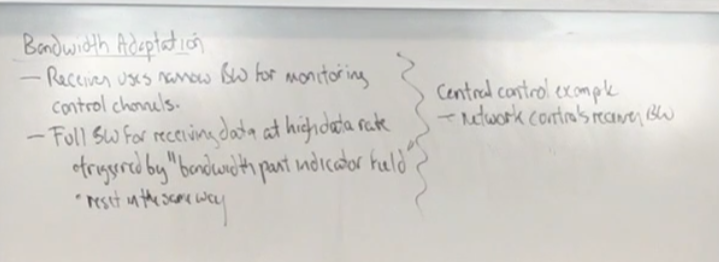 Bandwidth Adaptation
- Receiver uses narrow BW for monitoring
control channels.
- Full BW for receiving data at high data rate
• triggered by "bandwidth part indicator field"
• reset in the same way
Central control example
- Network controls receiver BW